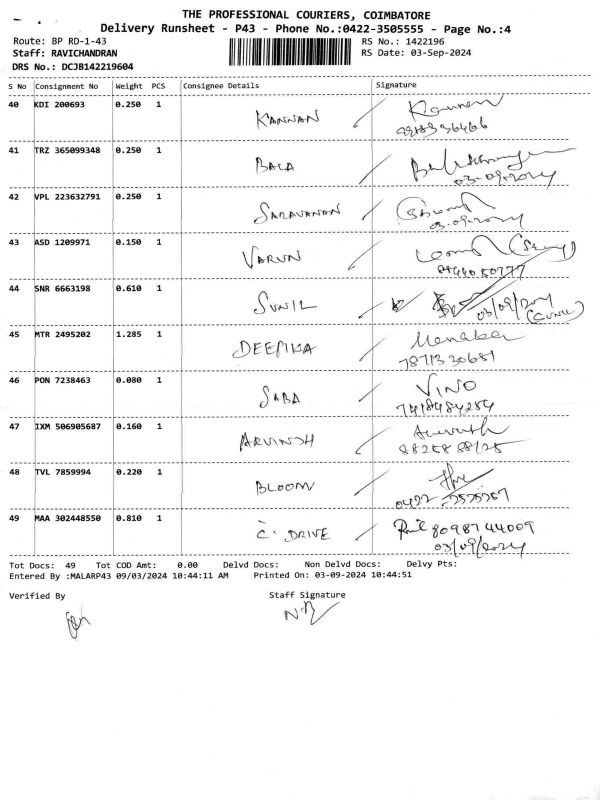 THE PROFESSIONAL COURIERS, COIMBATORE
Delivery Runsheet - P43 - Phone No.:0422-3505555 - Page No.:4
Route: BP RD-1-43 RS No.: 1422196
Staff: RAVICHANDRAN RS Date: 03-Sep-2024
DRS No.: DCJB142219604
S No Consignment No Weight PCS Consignee Details Signature
40 KDI 200693 0.250 1 KANNAN Kannan
41 TRZ 365099348 0.250 1 BALA
03-09-2024
42 VPL 223632791 0.250 1 SARAVANAN
03-09-2024
43 ASD 1209971 0.150 1 VARUN
44 SNR 6663198 0.610 1 SUNIL 03/09/2024
(SUNIL)
45 MTR 2495202 1.285 1 DEEPIKA Menaka
7871330681
46 PON 7238463 0.080 1 SABA VINO
7418484254
47 IXM 506905687 0.160 1 ARVINDH
8825888125
48 TVL 7859994 0.220 1 BLOOM
0422-2525257
49 MAA 302448550 0.810 1 C. DRIVE 8098744009
03/09/2024
Tot Docs: 49 Tot COD Amt: 0.00 Delvd Docs: Non Delvd Docs: Delvy Pts:
Entered By :MALARP43 09/03/2024 10:44:11 AM Printed On: 03-09-2024 10:44:51
Verified By Staff Signature